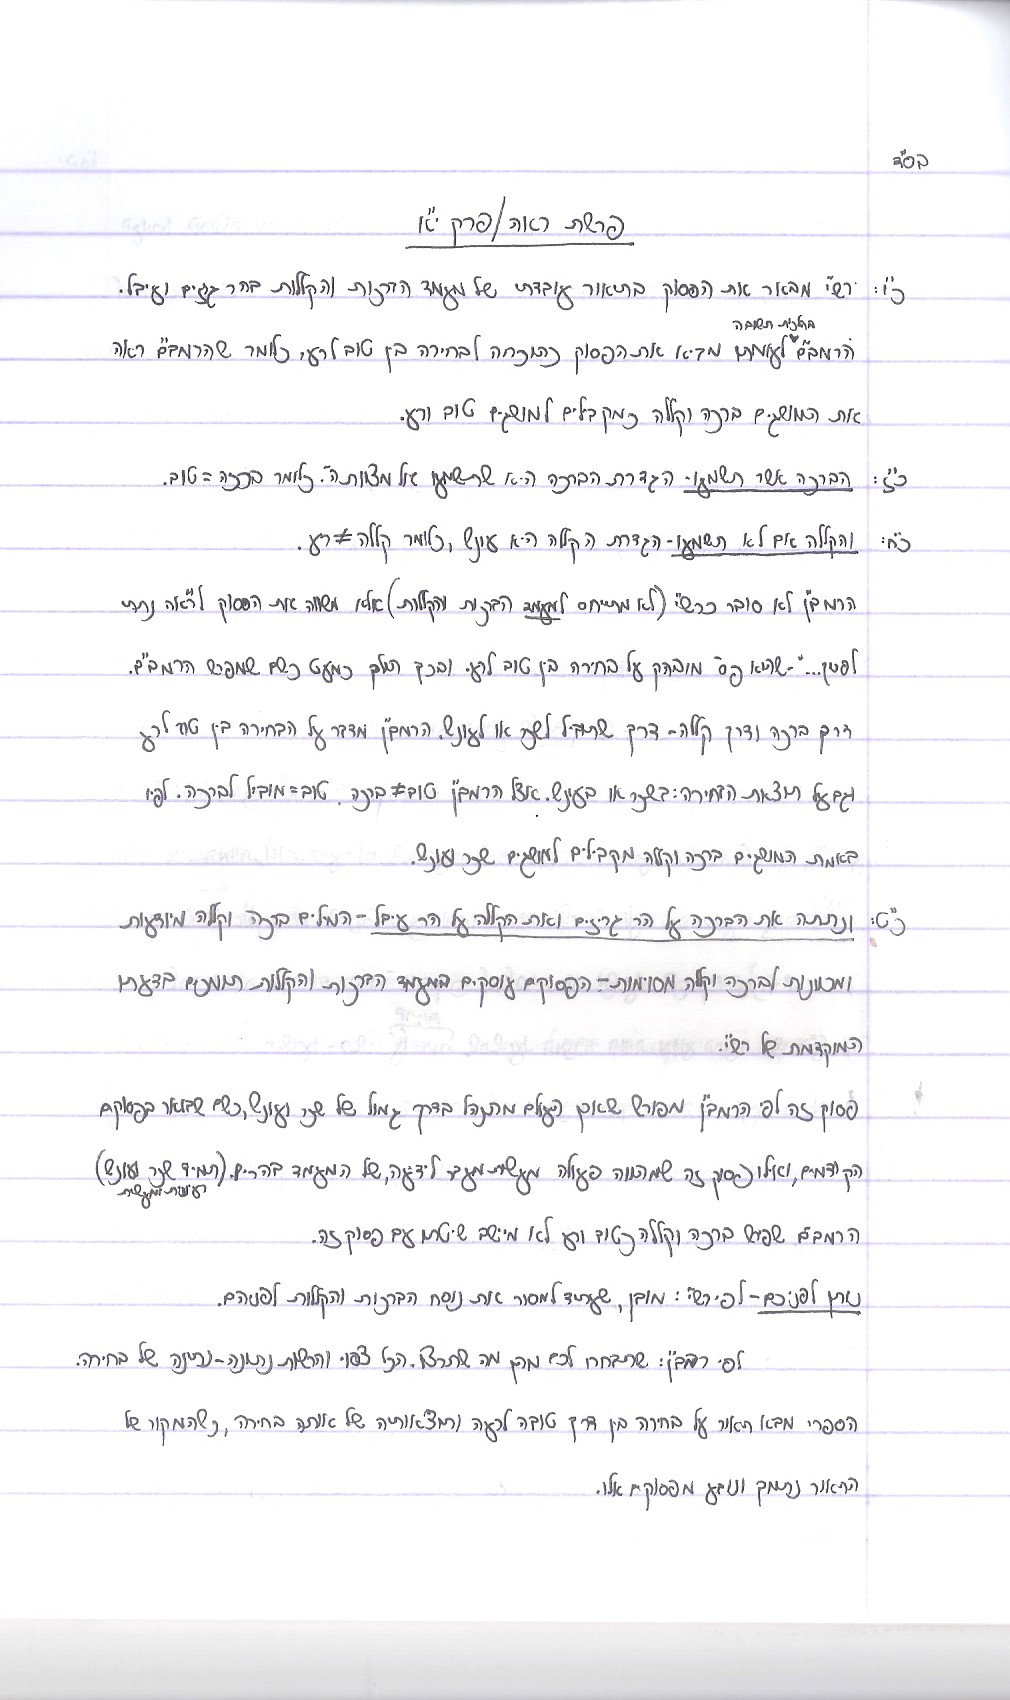 בס"ד
פרשת ראה/פרק י"א
כ"ו: רש"י מבאר את הפסוק בתיאור עובדתי של מעמד הברכות והקללות בהר גריזים ועיבל.
בהלכות תשובה
הרמב"ם לעומתו מביא את הפסוק כהוכחה לבחירה בין טוב לרע, כלומר שהרמב"ם ראה
את המושגים ברכה וקללה כמקבילים למושגים טוב ורע.
כ"ז: הברכה אשר תשמעו- הגדרת הברכה היא שתשמעו אל מצוות ה'. כלומר ברכה=טוב.
כ"ח: והקללה אם לא תשמעו- הגדרת הקללה היא עונש, כלומר קללה≠רע.
הרמב"ן לא סובר כרש"י (לא מתייחס למעמד הברכות והקללות) אלא משווה את הפסוק ל"ראה נתתי
לפניך..."- שהוא פס' מובהק על בחירה בין טוב לרע. ובכך הולך כמעט כשם שמפרש הרמב"ם.
דרך ברכה ודרך קללה- דרך שתוביל לשכר או לעונש. הרמב"ן מדבר על הבחירה בין טוב לרע
וגם על תוצאת הבחירה: בשכר או בעונש. אצל הרמב"ן טוב≠ברכה. טוב=מוביל לברכה. לפיו
באמת המושגים ברכה וקללה מקבילים למושגים שכר ועונש.
כ"ט: ונתתה את הברכה על הר גריזים ואת הקללה על הר עיבל- המלים ברכה וקללה מיודעות
ומכוונות לברכה וקללה מסוימות- הפסוקים עוסקים במעמד הברכות והקללות תומכים בדעתו
המוקדמת של רש"י.
פסוק זה לפי הרמב"ן מפורש שאופן העולם מתנהל בדרך גמול של שכר ועונש, כשם שבואר בפסוקים
הקודמים, ואילו פסוק זה שמהווה פעולה מעשית מעבר לידיעה, של המעמד בהרים. (תמיד שכר ועונש)
רעיונית ומעשית
הרמב"ם שפירש ברכה וקללה כטוב ורע לא מיישב שיטתו עם פסוק זה.
נותן לפניכם- לפי רש"י: מובן, שעתיד למסור את נוסח הברכות והקללות לפניהם.
לפי רמב"ן: שתבחרו לכם מהן מה שתרצו. הכל צפוי והרשות נתונה- נתינה של בחירה.
הספרי מביא תאור על בחירה בין דרך טובה לרעה ותוצאותיה של אותה בחירה, כשהמקור של
התאור נתמך ונובע מפסוקים אלו.